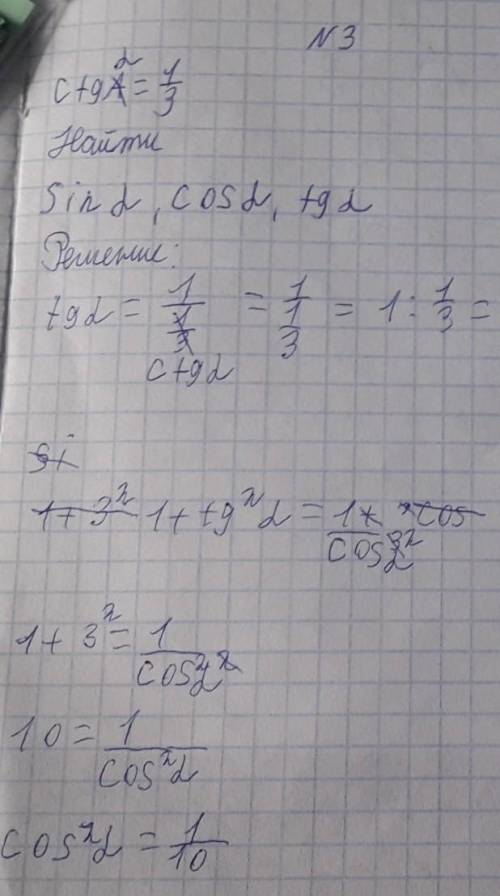 N 3
ctg α = 1/3
Найти
Sin α, cos α, tg α
Решение:
tg α = 1/ctg α = 1/(1/3) = 1 : 1/3 =
si
1 + 3² 1 + tg² α = 1/cos² α
1 + 3² = 1/cos² α
10 = 1/cos² α
cos² α = 1/10